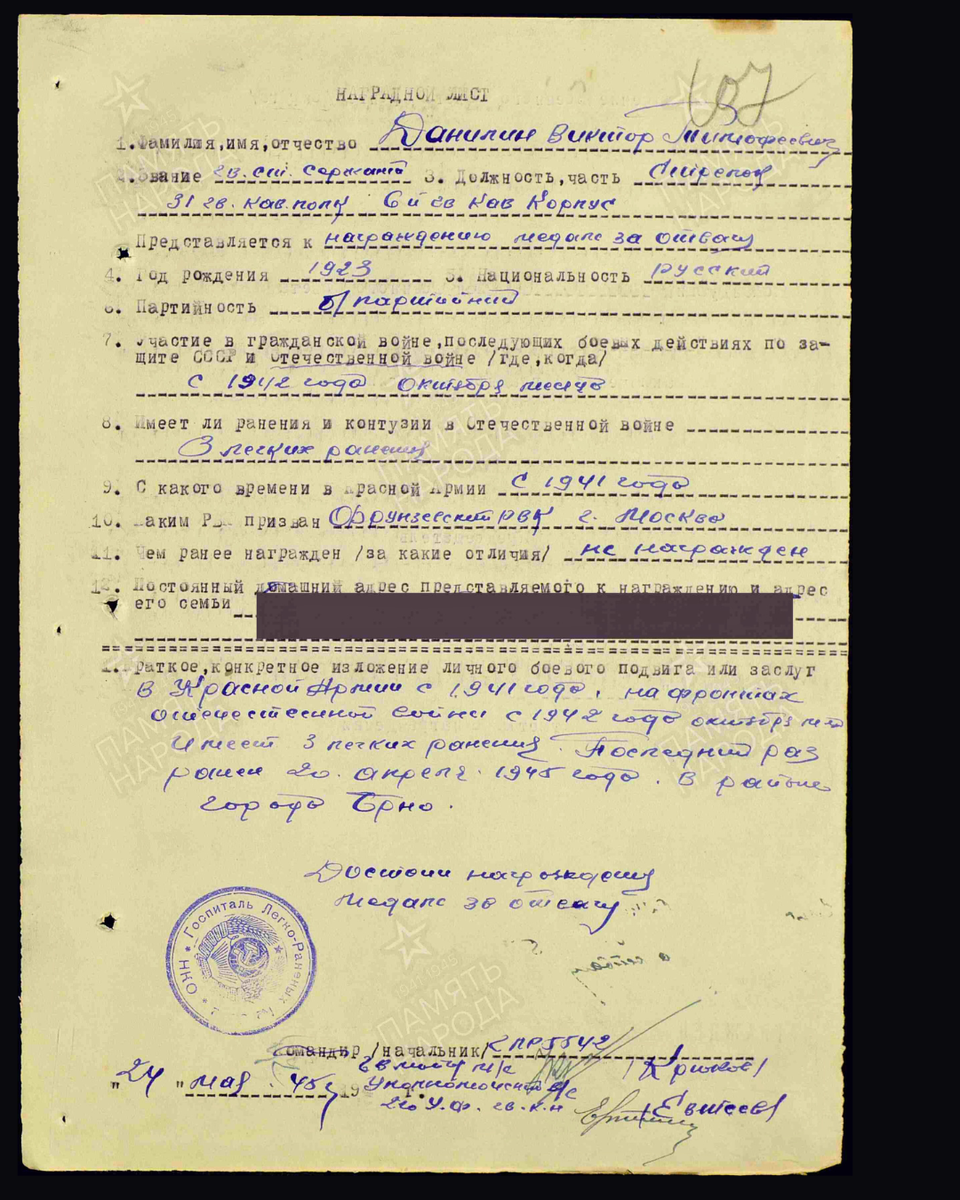 107
НАГРАДНОЙ ЛИСТ
1. Фамилия,имя,отчество Данилин Виктор Тимофеевич
2. Звание гв. ст. сержант 3. Должность,часть Стрелок
31 гв. кав. полк 6й гв Кав Корпус
Представляется к награждению медаль за отвагу
4. Год рождения 1923 5. Национальность русский
6. Партийность б/партийный
7. Участие в гражданской войне,последующих боевых действиях по за-
щите СССР и Отечественной войне /где,когда/
с 1942 года октября месяца
8. Имеет ли ранения и контузии в Отечественной войне
3 легких ранения
9. С какого времени в Красной Армии с 1941 года
10. Каким РВК призван Фрунзенский РВК г. Москва
11. Чем ранее награжден /за какие отличия/ не награжден
12. Постоянный домашний адрес представляемого к награждению и адрес
его семьи
1. Краткое,конкретное изложение личного боевого подвига или заслуг
В Красной Армии с 1941 года, на фронтах
отечественной войны с 1942 года октября м-ца
Имеет 3 легких ранения. Последний раз
ранен 20. апреля. 1945 года. В районе
города Брно.
Достоин награждения
медаль за отвагу
ОКНН * Госпиталь Легко-Раненых
Командир /начальник/ ГЛР 5542
гв майор м/с /Крюков/
"24" мая. 45г 19 г. Уполномоченный
2го У.Ф. /Евтеев/
ПАМЯТЬ НАРОДА